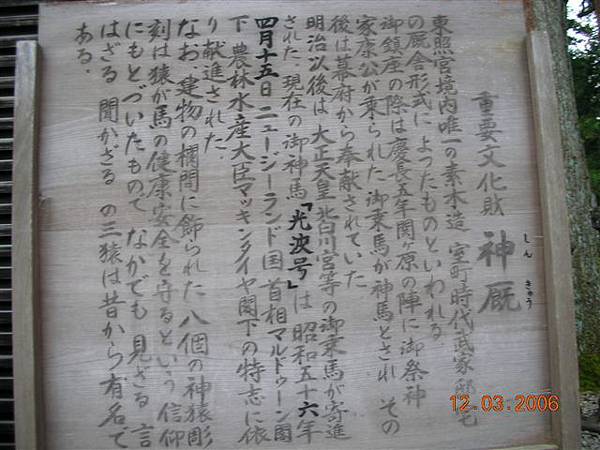 重要文化財 神厩
しんきゅう
東照宮境内唯一の素木造 室町時代武家邸宅
の厩舎形式に よつたものといわれる
御鎮座の際は 慶長五年関ヶ原の陣に御祭神
家康公が乗られた 御乗馬が神馬とされ その
後は幕府から奉献されていた
明治以後は 大正天皇 北白川宮等の御乗馬が寄進
された．現在の御神馬「光波号」は 昭和五十六年
四月十五日 ニュージーランド国首相マルドゥーン閣
下 農林水産大臣マッキンタイヤ閣下の特志に依
り献進された．
なお 建物の欄間に飾られた 八個の神猿彫
刻は 猿が馬の健康安全を守るという 信仰
にもとづいたもので なかでも 見ざる 言
はざる 聞かざる の三猿は昔から有名で
ある．
12.03.2006